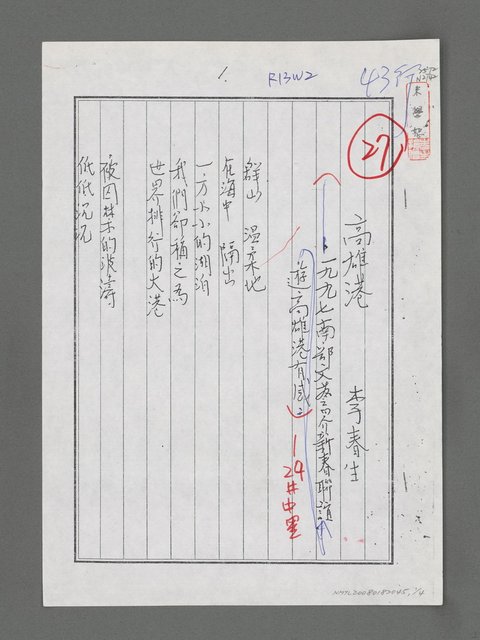 1.
R13W2
43行
27
高雄港
李春生
一九九七南部文藝界新春聯誼
遊高雄港有感
24井中黑
群山 溫柔地
在海中 隔出
一方小小的湖泊
我們卻稱之為
世界排行的大港
被囚禁的波濤
低低沉沉
NMTL20080182045, 1/4